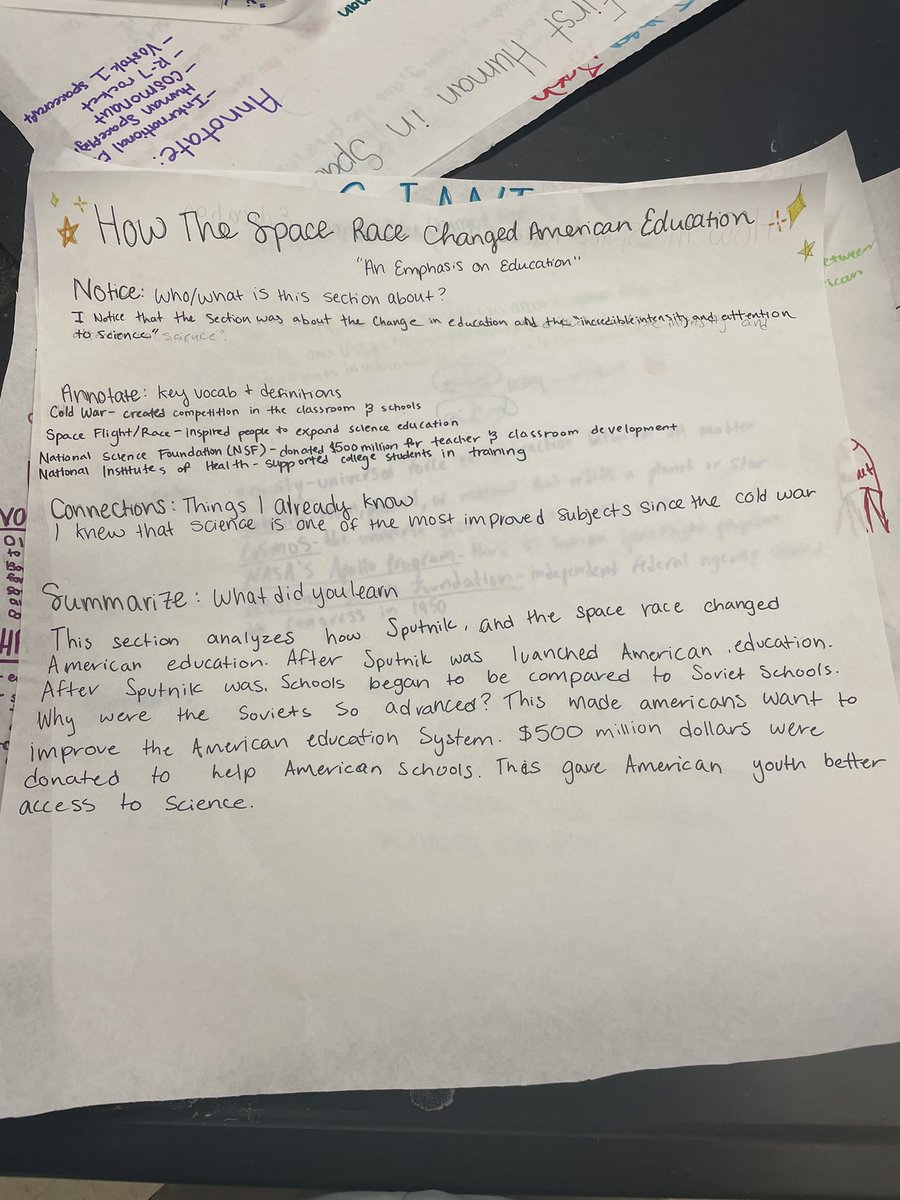 First Human in Spac
Annotate:
- International
Human Spaceflig
- Cosmonaut
- R-7 rocket
- Vostok 1 spacecraft
GIANT
How The Space Race Changed American Education
"An Emphasis on Education"
Notice: Who/what is this section about?
I Notice that the section was about the change in education and the "incredible intensity and attention
to science" science".
Annotate: key vocab + definitions
Cold War- created competition in the classroom & schools
Space Flight/Race - inspired people to expand science education
National Science Foundation (NSF) - donated $500 million for teacher & classroom development
National Institutes of Health - supported college students in training
Connections: Things I already know
I knew that science is one of the most improved subjects since the cold war
Summarize: What did you learn
This section analyzes how Sputnik, and the space race changed
American education. After Sputnik was luanched American education.
After Sputnik was. Schools began to be compared to Soviet Schools.
Why were the Soviets so advanced? This made americans want to
improve the American education System. $500 million dollars were
donated to help American Schools. This gave American youth better
access to Science.